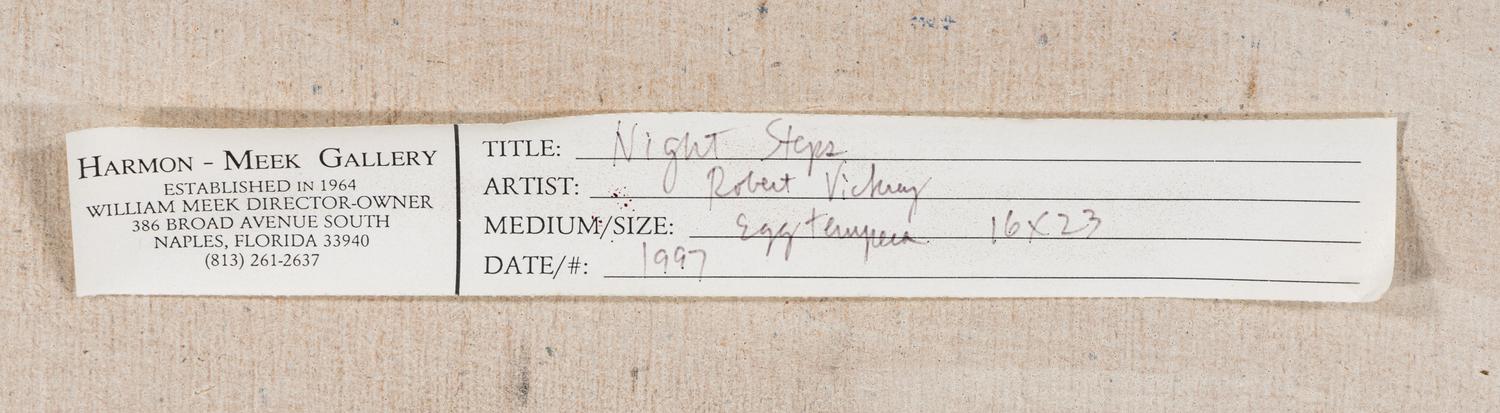 HARMON - MEEK GALLERY
ESTABLISHED IN 1964
WILLIAM MEEK DIRECTOR-OWNER
386 BROAD AVENUE SOUTH
NAPLES, FLORIDA 33940
(813) 261-2637
TITLE: Night Steps
ARTIST: Robert Vickrey
MEDIUM/SIZE: Egg tempera 16X23
DATE/#: 1997